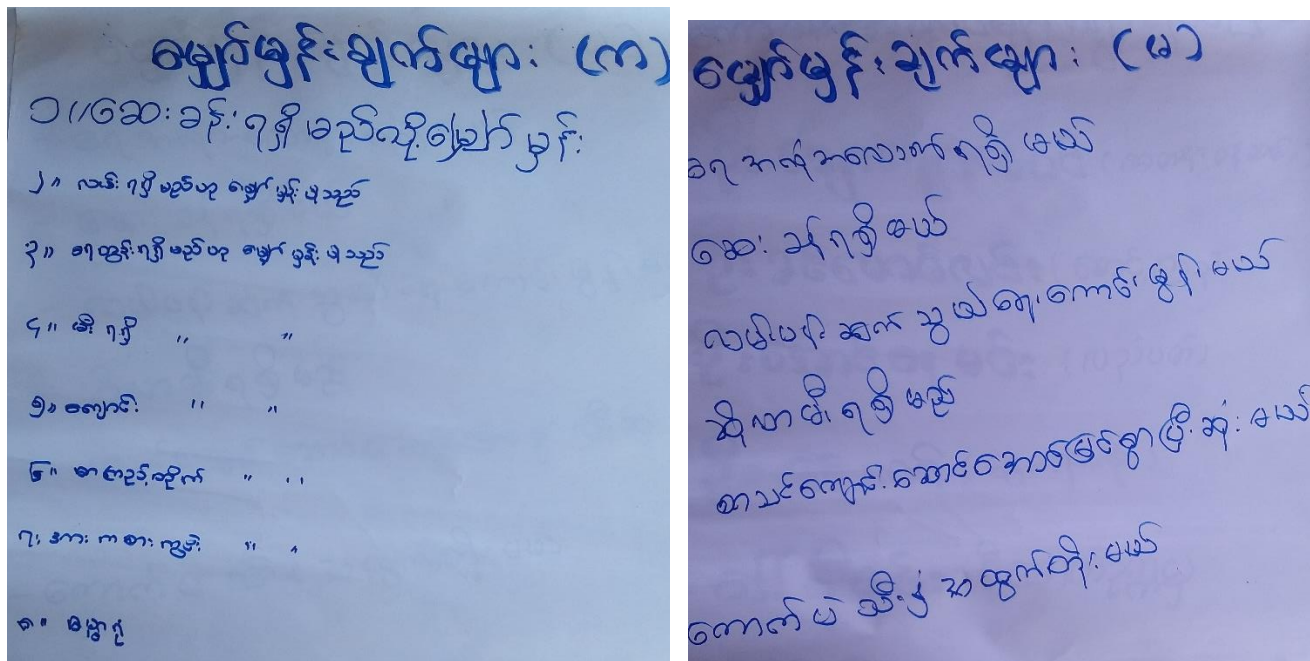 မျှော်မှန်းချက်များ (က)
၁။ဆေးခန်းရရှိမည်လို့မျှော်မှန်း
၂။ လမ်းရရှိမည်ဟု မျှော်မှန်းပါသည်
၃။ ရေတွင်းရရှိမည်ဟု မျှော်မှန်းပါသည်
၄။ မီးရရှိ " "
၅။ ကျောင်း " "
၆။ စာကြည့်တိုက် " "
၇။ အားကစားကွင်း " "
၈။
မျှော်မှန်းချက်များ (မ)
ရေအလုံအလောက်ရရှိမယ်
ဆေးခန်းရရှိမယ်
လမ်းပန်းဆက်သွယ်ရေးကောင်းမွန်မယ်
ဆိုလာမီးရရှိမည်
စာသင်ကျောင်းဆောင်အောင်မြင်စွာပြီးဆုံးမယ်
ကောက်ပဲသီးနှံအထွက်တိုးမယ်